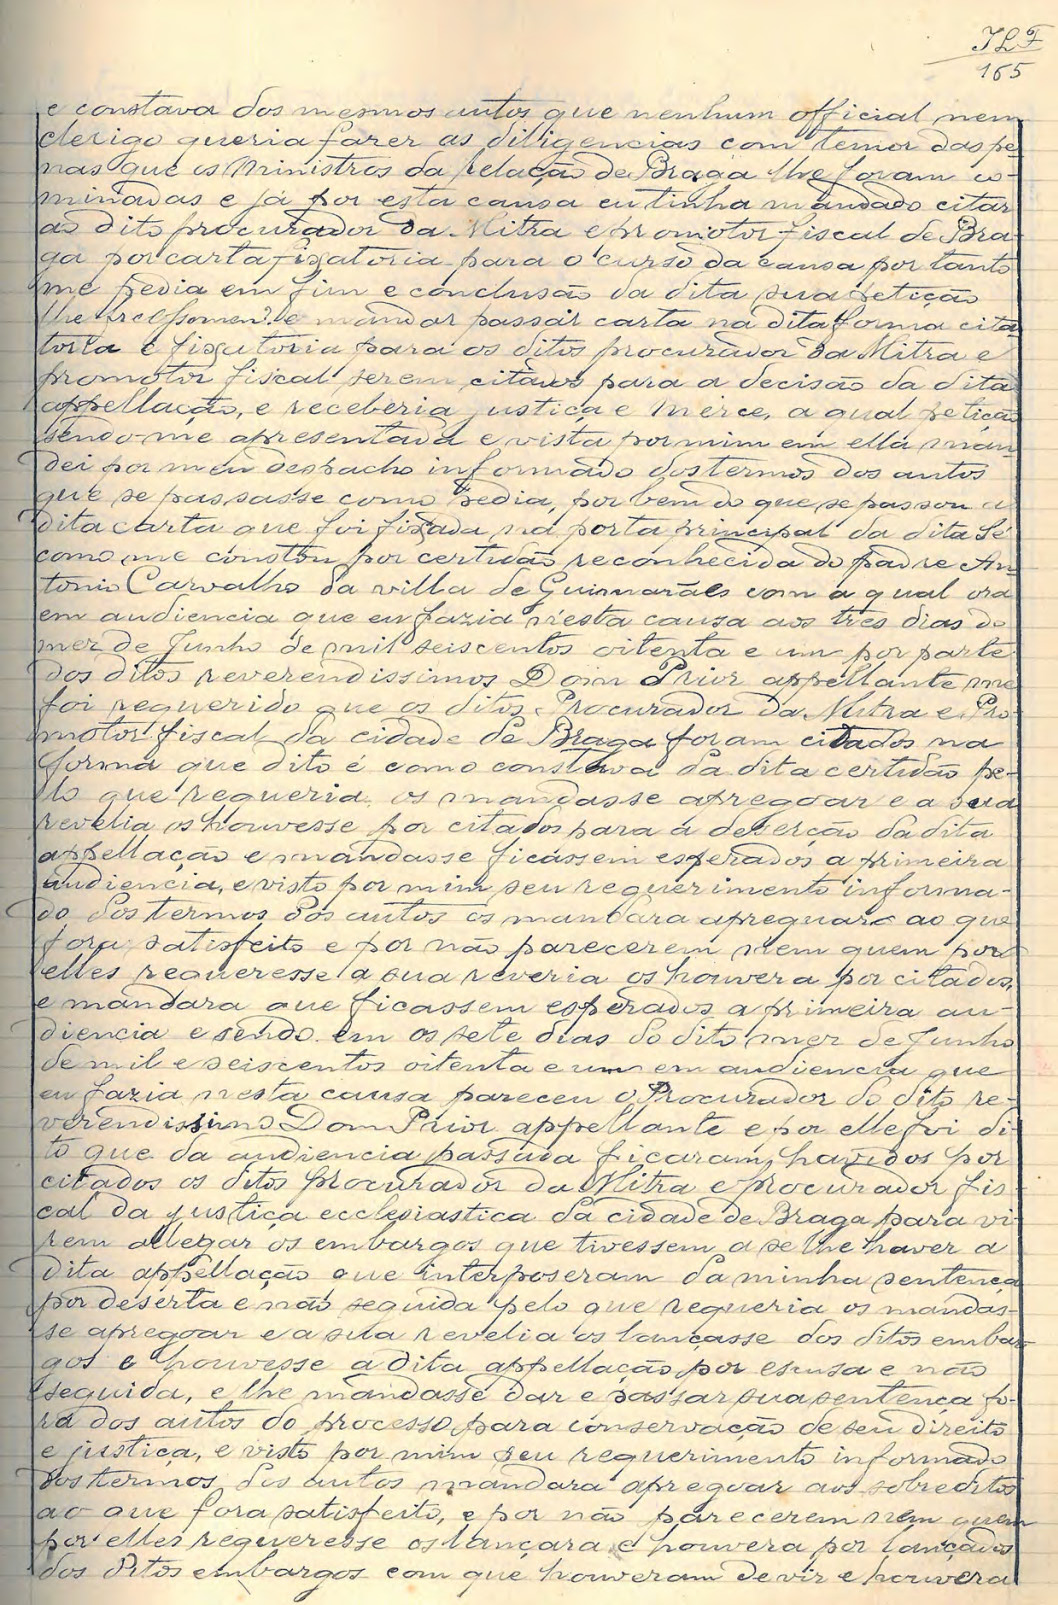 JLF
165
e constava dos mesmos autos que nenhum official nem
clerigo queria fazer as diligencias com temor das pe-
nas que os Ministros da Relação de Braga lhe foram co-
minadas e já por esta causa eu tinha mandado citar
ao dito procurador da Mitra e promotor fiscal de Bra-
ga por carta fixatoria para o curso da causa por tanto
me pedia em fim e conclusão da dita sua petição
lhe mandar passar carta na dita forma cita-
toria e fixatoria para os ditos procurador da Mitra e
promotor fiscal serem citados para a decisão da dita
appellação, e receberia justiça e merce, a qual petição
sendo-me apresentada e vista por mim em ella man-
dei por meu despacho informado dos termos dos autos
que se passasse como pedia, por bem do que se passou a
dita carta que foi fixada na porta principal da dita Sé
como me constou por certidão reconhecida do padre An-
tonio Carvalho da villa de Guimarães com a qual ora
em audiencia que eu fazia n'esta causa aos tres dias do
mez de Junho de mil seiscentos oitenta e um por parte
dos ditos reverendissimos Dom Prior appellante me
foi requerido que os ditos Procurador da Mitra e Pro-
motor fiscal da cidade de Braga foram citados na
forma que dito é como constava da dita certidão pe-
lo que requeria os mandasse apregoar e a sua
revelia os houvesse por citados para a deserção da dita
appellação e mandasse ficassem esperados a primeira
audiencia, e visto por mim seu requerimento informa-
do dos termos dos autos os mandara apreguar ao que
fora satisfeito e por não parecerem nem quem por
elles requeresse a sua reveria os houvera por citados,
e mandara que ficassem esperados a primeira au-
diencia e sendo em os sete dias do dito mez de Junho
de mil e seiscentos oitenta e um em audiencia que
eu fazia nesta causa pareceu o Procurador do dito re-
verendissimo Dom Prior appellante e por elle foi di-
to que da audiencia passada ficaram havidos por
citados os ditos Procurador da Mitra e procurador fis-
cal da justiça ecclesiastica da cidade de Braga para vi-
rem allegar os embargos que tivessem a se lhe haver a
dita appellação que interposeram da minha sentença
por deserta e não seguida pelo que requeria os mandas-
se apregoar e a sua revelia os lançasse dos ditos embar-
gos e houvesse a dita appellação por escusa e não
seguida, e lhe mandasse dar e passar sua sentença fo-
ra dos autos do processo para conservação de seu direito
e justiça, e visto por mim seu requerimento informado
dos termos dos autos mandara apregoar aos sobreditos
ao que fora satisfeito, e por não parecerem nem quem
por elles requeresse os lançara e houvera por lançados
dos ditos embargos com que houveram de vir e houvera